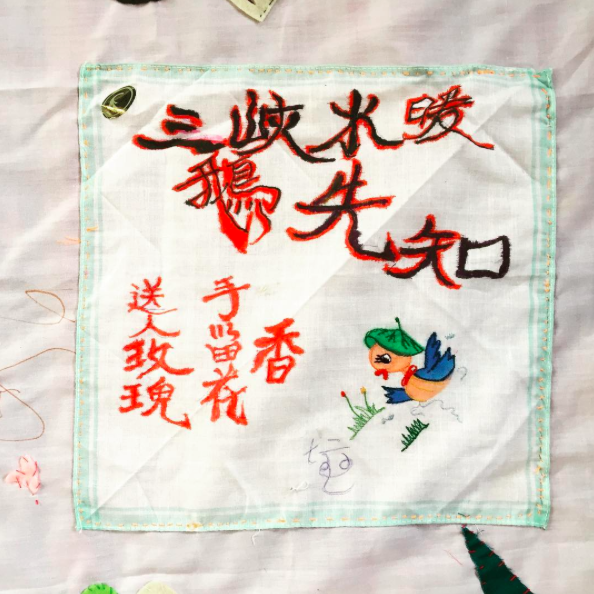 三峽水暖
鵝先知
送人玫瑰
手留花香